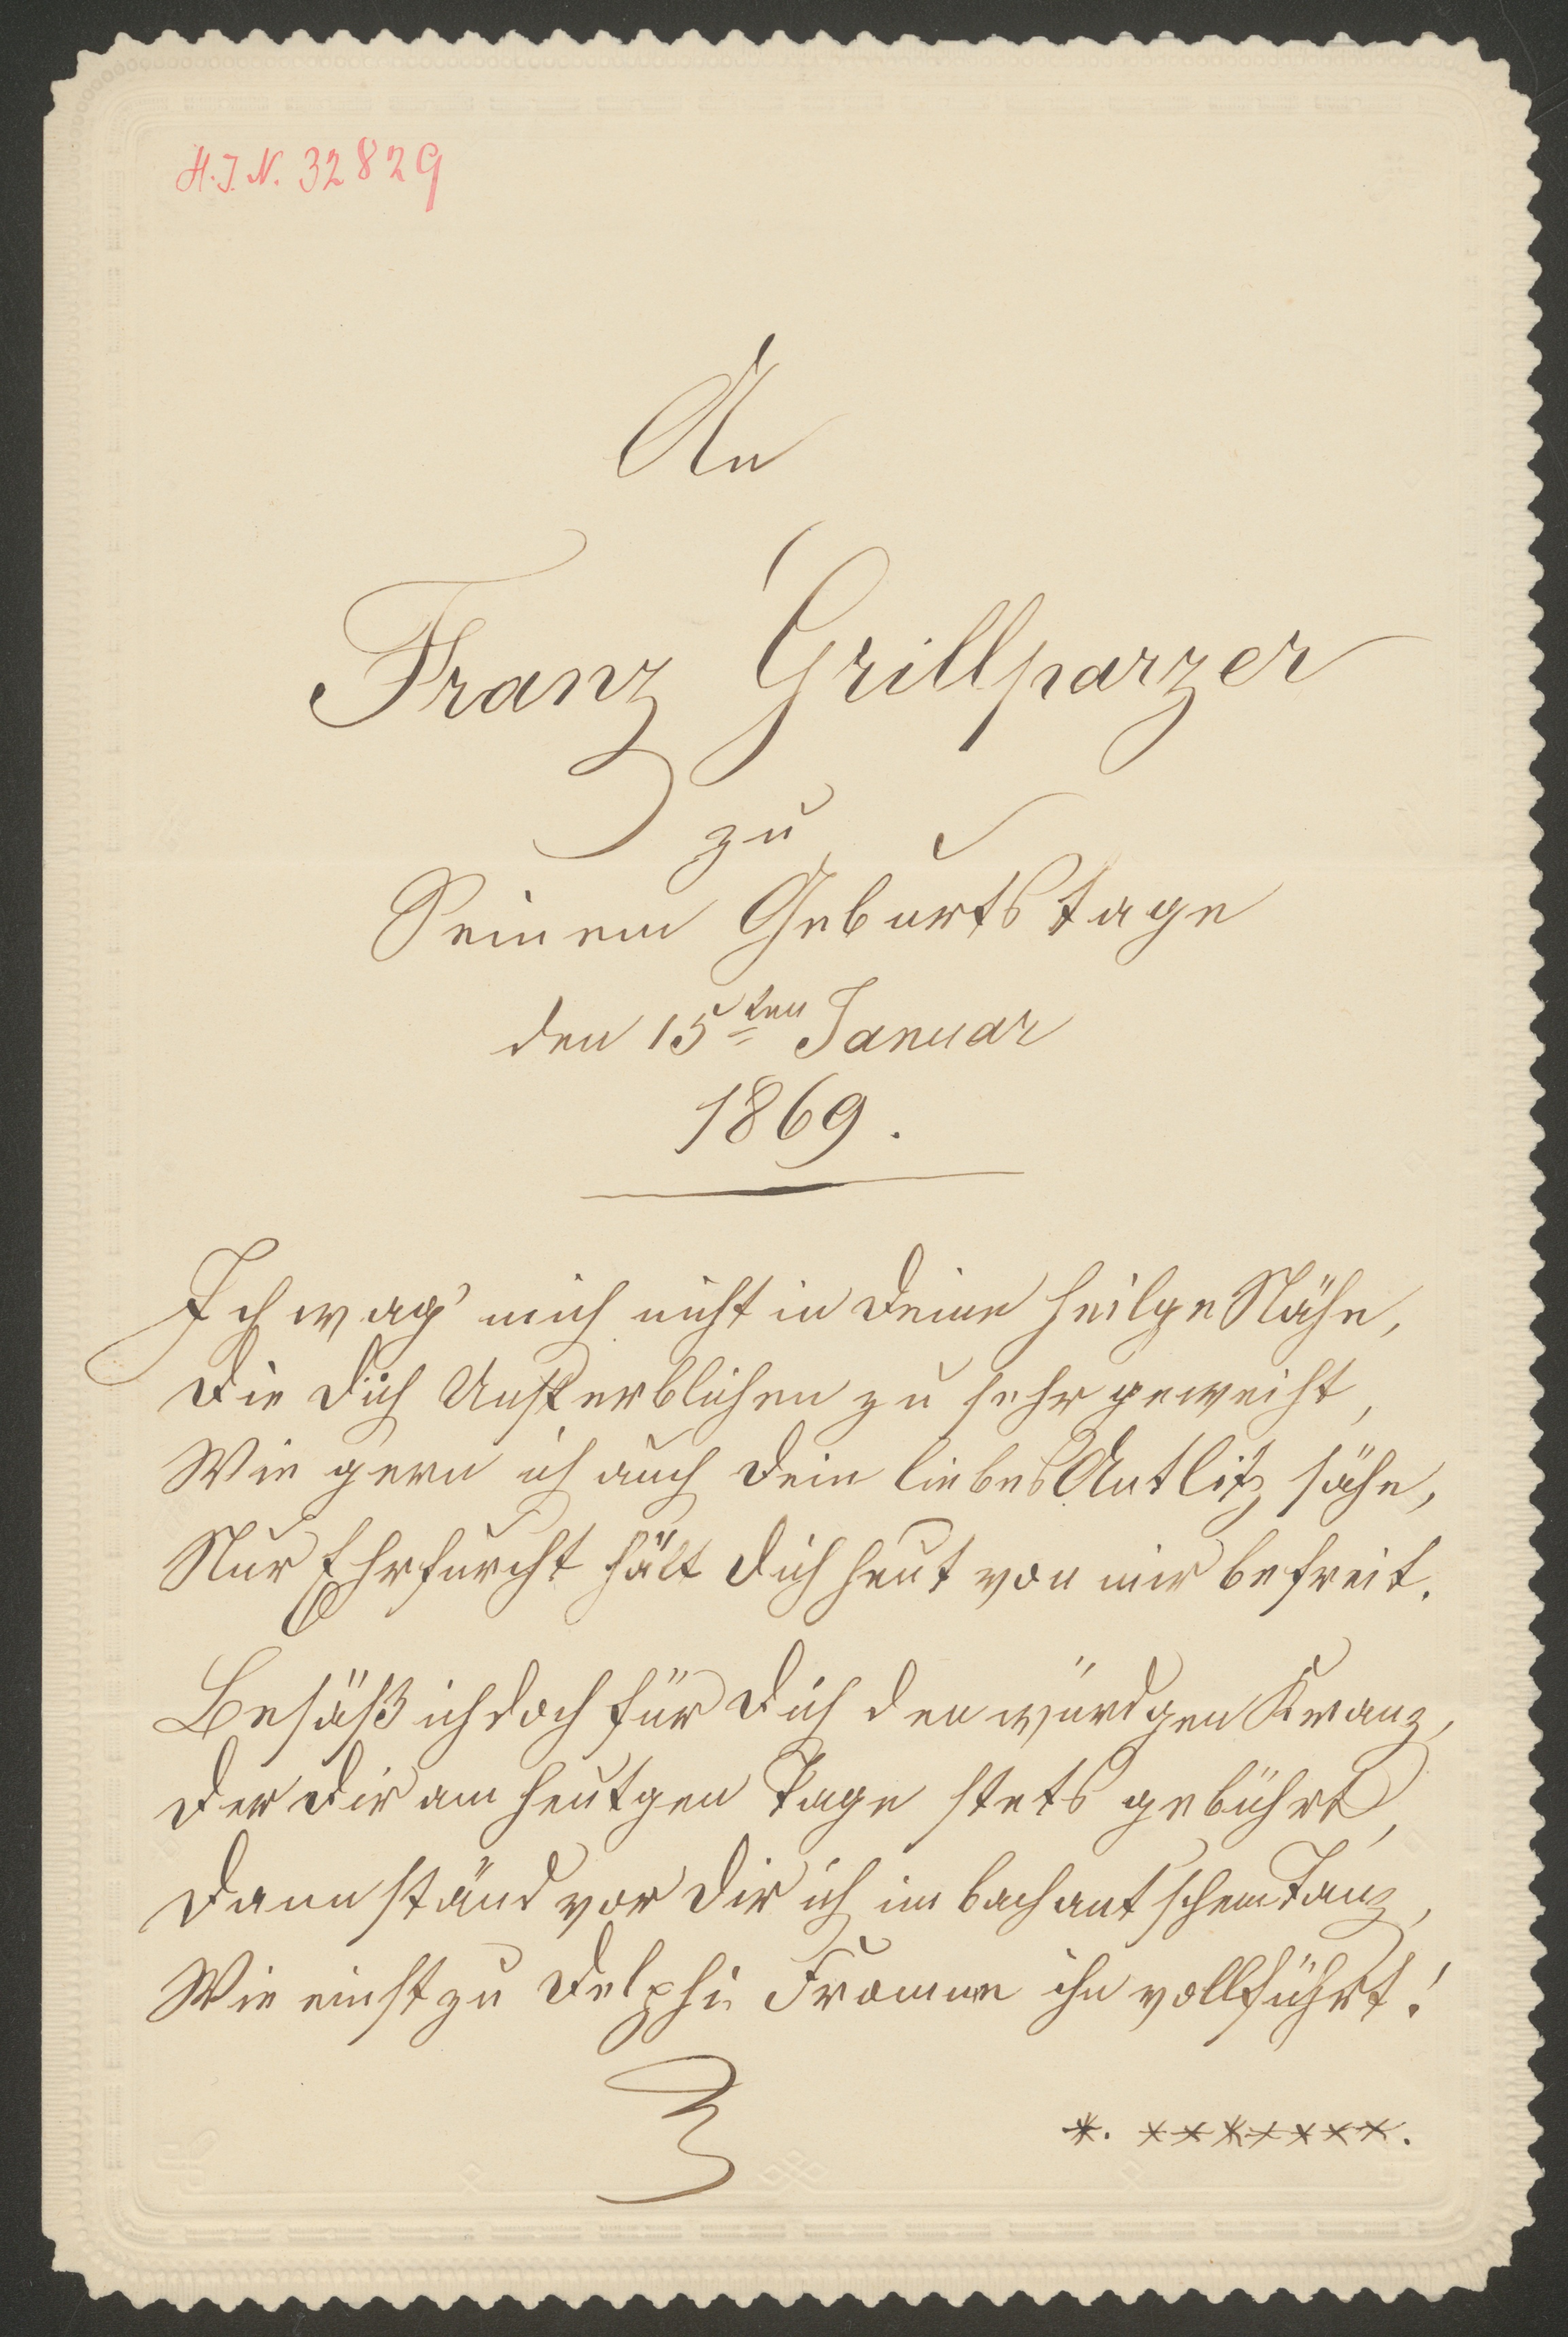 H.I.N. 32829
An
Franz Grillparzer
zu
Seinem Geburtstage
den 15ten Januar
1869.
Ich wag' mich nicht in Deine heilge Nähe,
Die Dich Unsterblichen zu sehr geweiht,
Wie gern ich auch Dein liebes Antlitz sähe,
Nur Ehrfurcht hält Dich heut von mir befreit.
Besäß ich doch für Dich den würdgen Kranz,
Der Dir am heutgen Tage stets gebührt,
Dann ständ vor Dir ich im bachantschem Tanz,
Wie einst zu Delphi Fromme ihn vollführt!
*. *******.